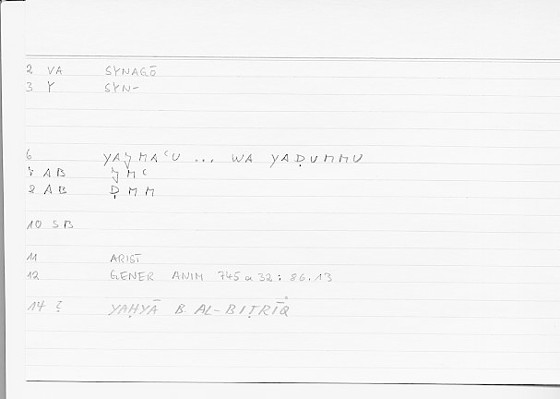 2 VA SYNAGŌ
3 Y SYN-
6 YAǦMAʿU ... WA YAḌUMMU
7 AB ǦMʿ
8 AB ḌMM
10 SB
11 ARIST
12 GENER ANIM 745 a 32 : 86.13
14 YAḤYĀ B. AL-BIṬRĪQ